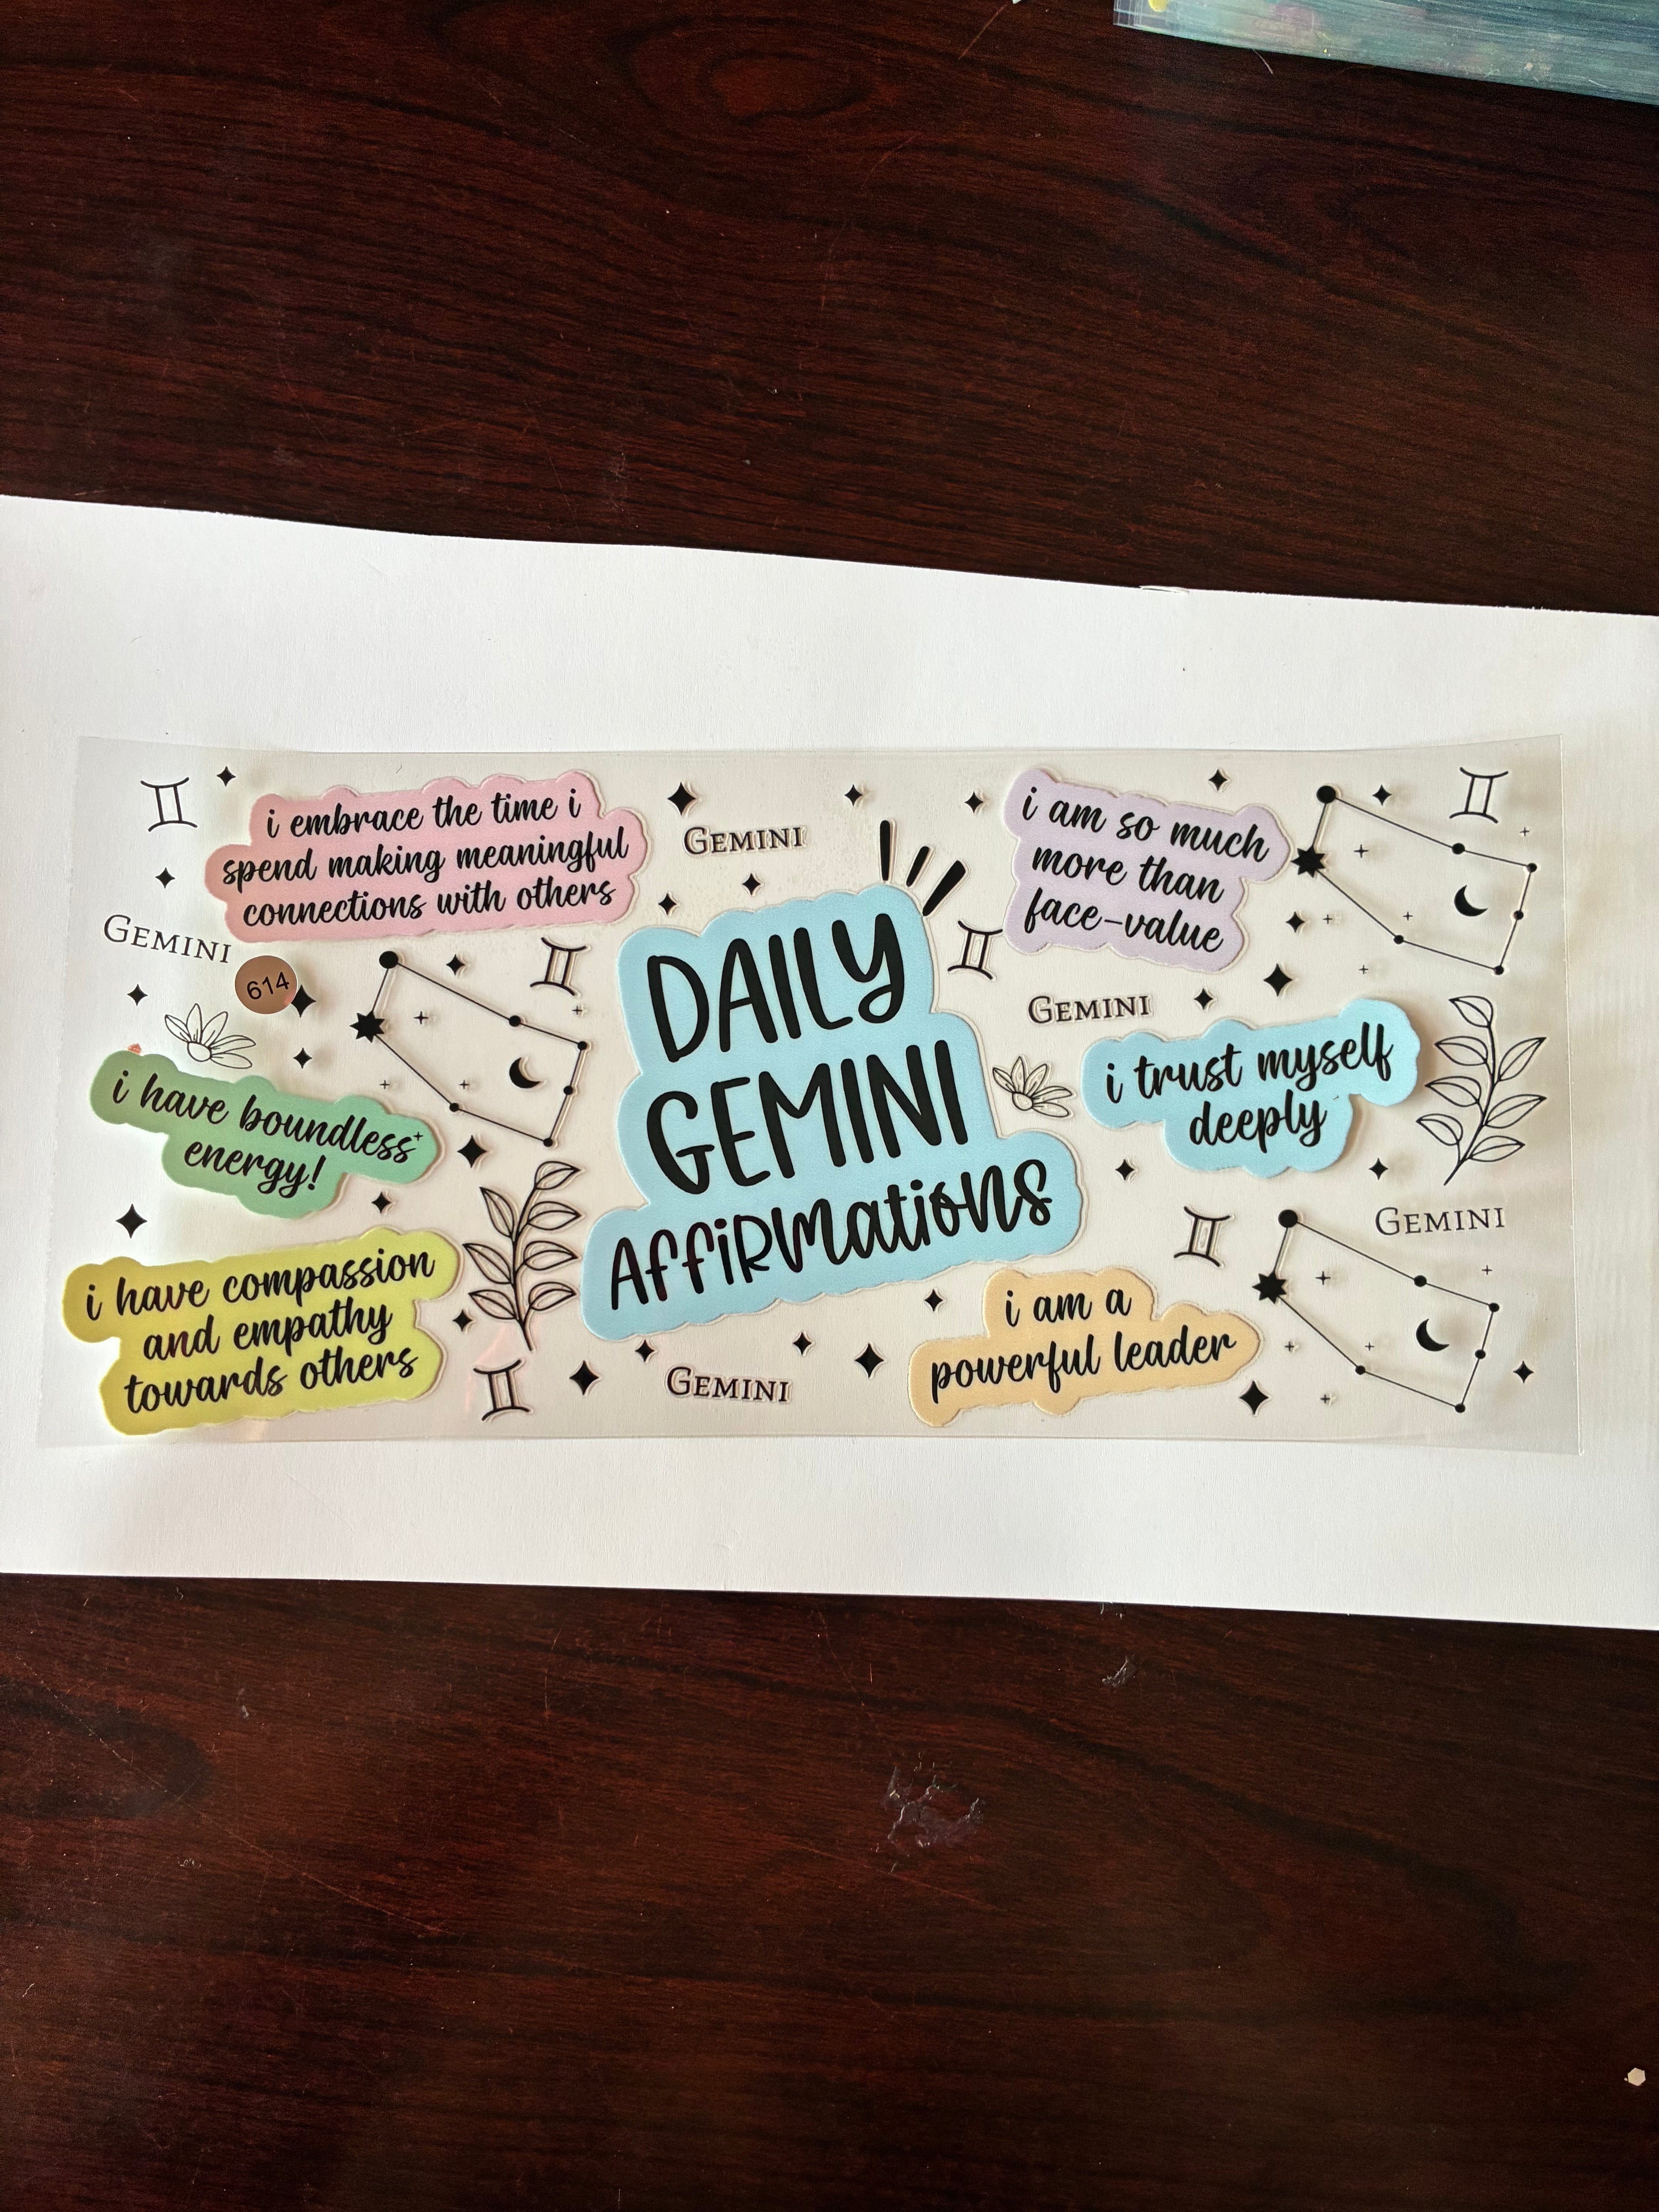 i embrace the time i
spend making meaningful
connections with others
GEMINI
i am so much
more than
face-value
GEMINI
614
DAILY
GEMINI
AFFIRMATIONS
GEMINI
i have boundless
energy!
i trust myself
deeply
GEMINI
i have compassion
and empathy
towards others
i am a
powerful leader
GEMINI